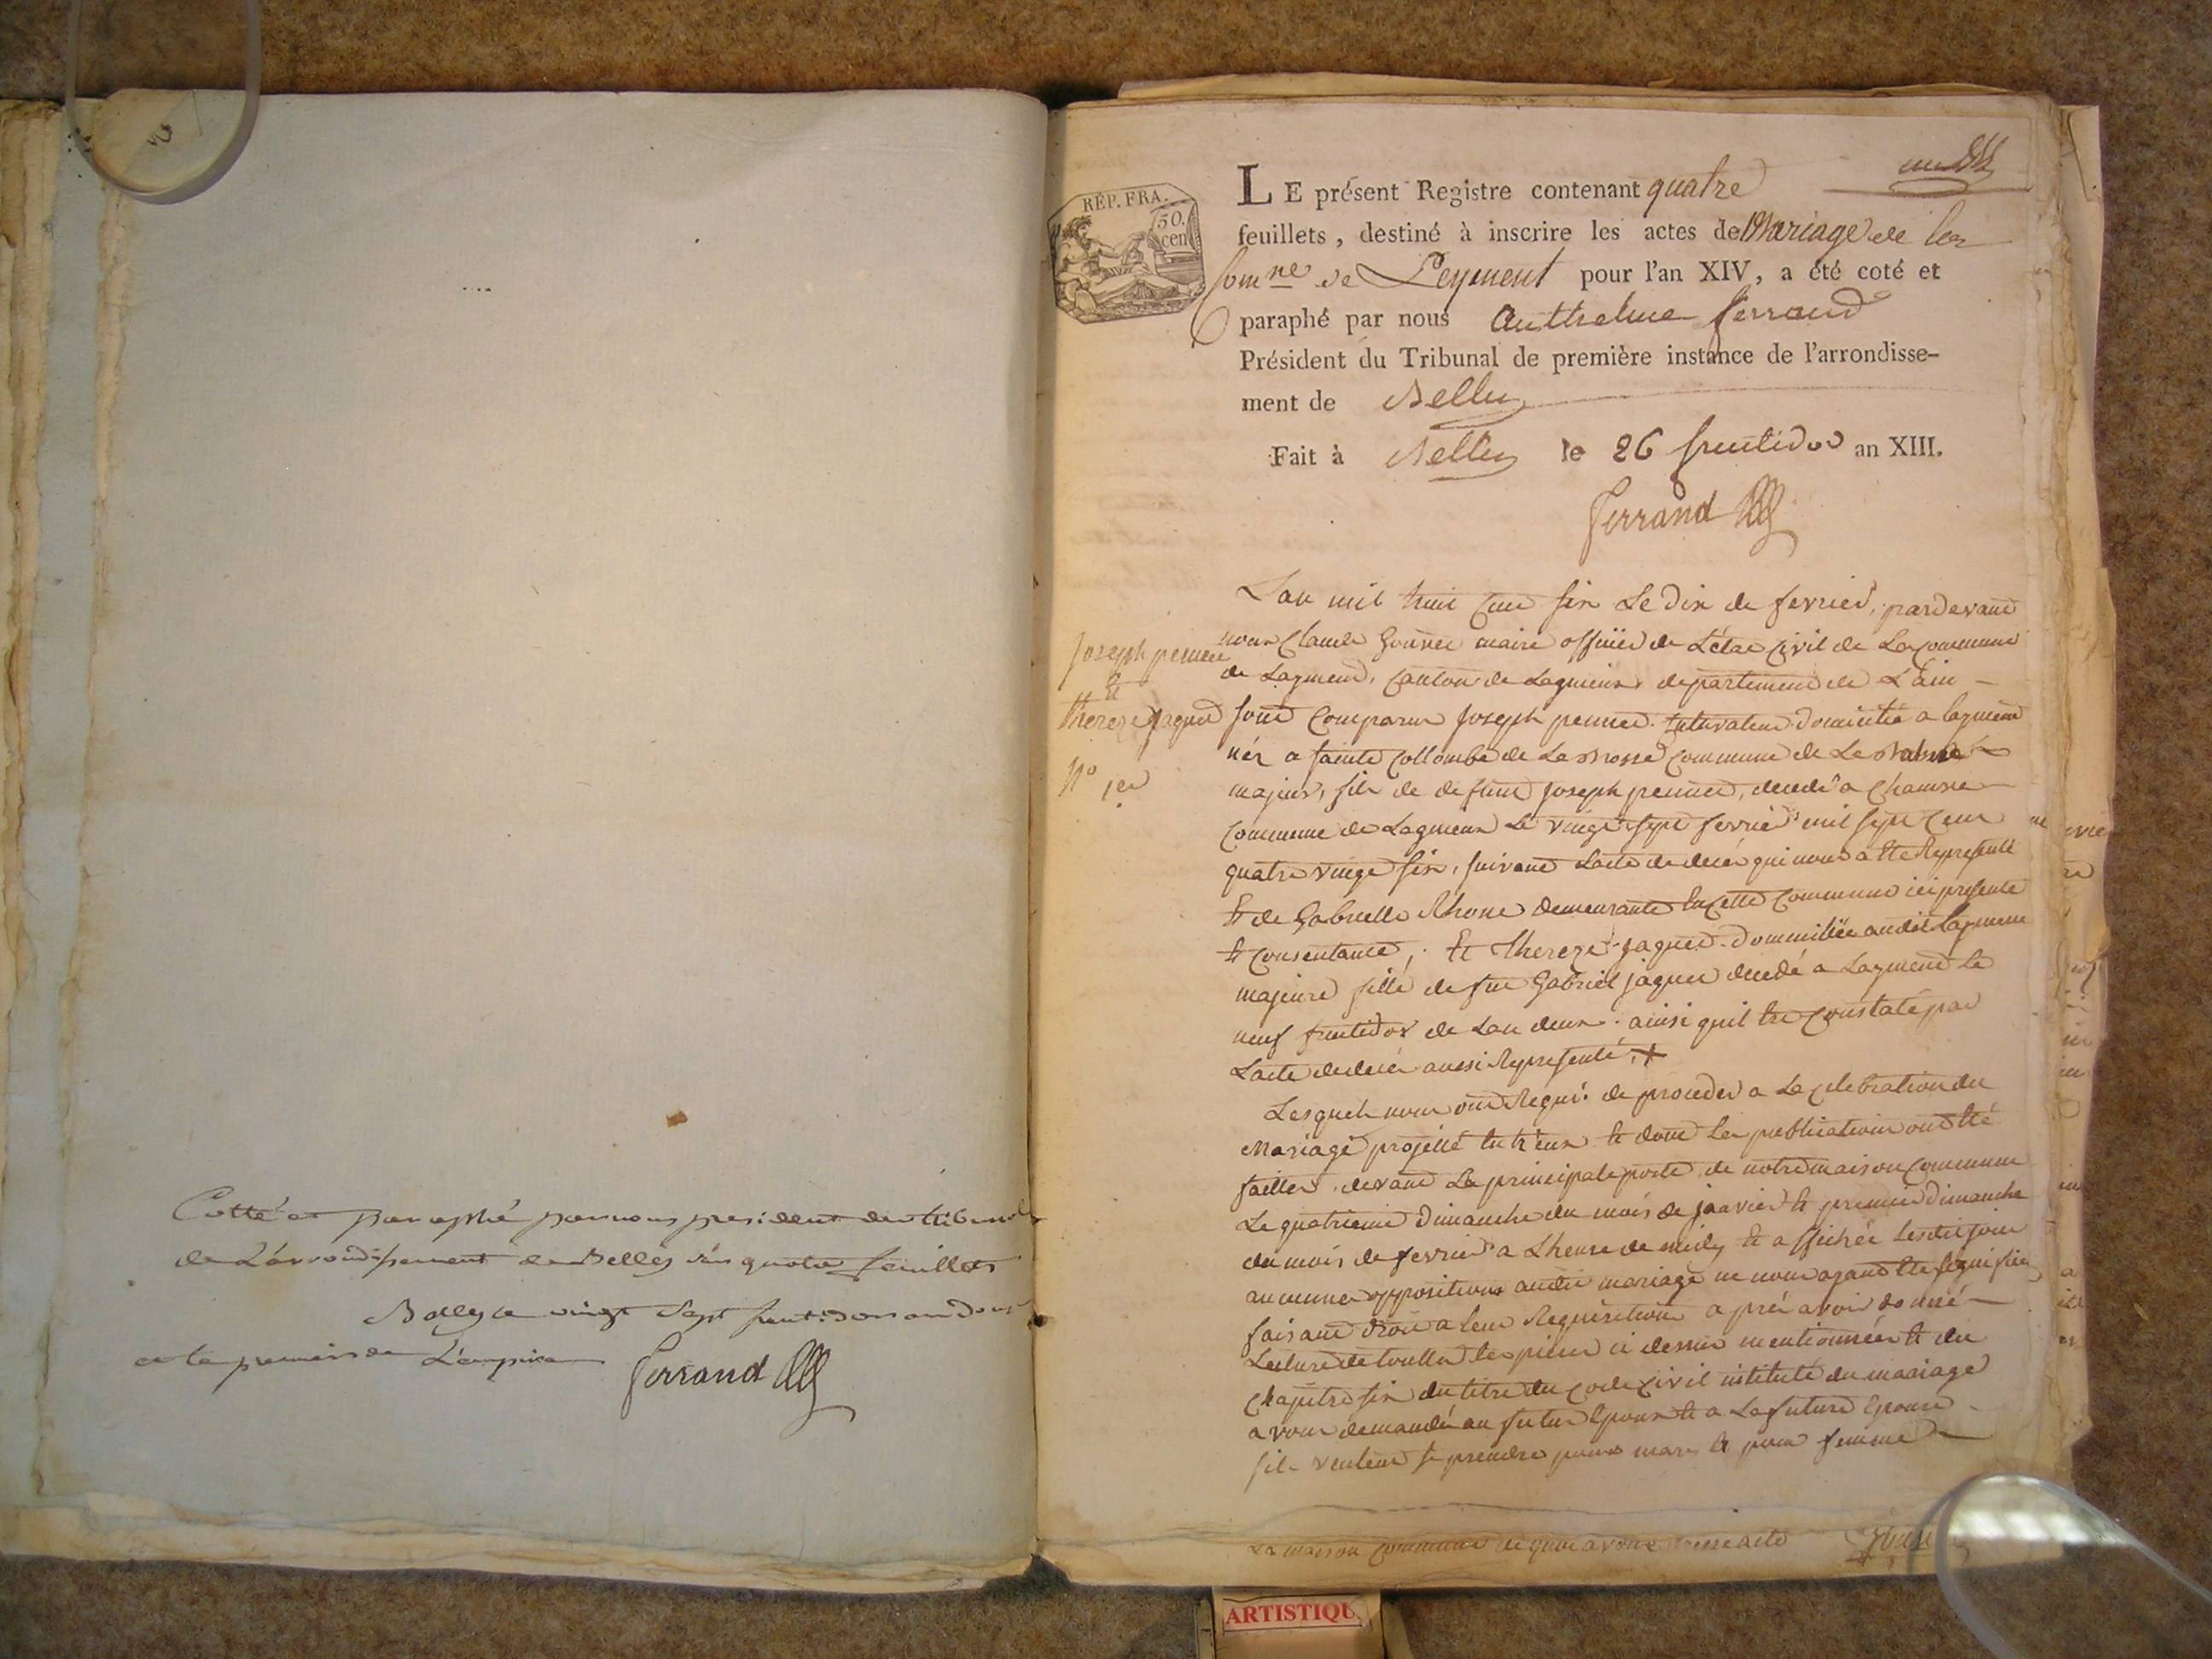 Cotté et paraphé par nous president du tribunal
de l'arrondissement de Belley
quatre feuillets
Belley le vingt sept fructidor an douze
et le premier de L'empire
Ferrand
RÉP. FRA.
50.
cen
un
LE présent Registre contenant quatre
feuillets, destiné à inscrire les actes de Mariage de la
Comne de Leyment pour l'an XIV, a été coté et
paraphé par nous Anthelme ferrand
Président du Tribunal de première instance de l'arrondisse-
ment de Belley
Fait à Belley le 26 fructidor an XIII.
Ferrand
Joseph pennet
Et
thereze jaquet
No 1er
L'an mil huit cent six Le dix de fevrier, pardevant
nous Claude maire officier de L'état civil de La commune
de Laymend, canton de Lagnieux departement de L'ain
sont comparus Joseph pennet cultivateur domicilié a laymend
nér a sainte Collombe de La commune de La
majeur, fils de defunt Joseph pennet, decedé a
commune de Lagnieux Le vingt sept fevrier mil sept cent
quatre vingt six, suivant L'acte de decés qui nous a Eté Represente
Et de Gabrielle Rhone demeurante En cette commune ici presente
Et consentante, Et Thereze jaquet domicilliée audit Laymend
majeure fille de feu Gabriel jaquet decedé a Laymend Le
neuf fructidor de L'an deux ainsi quil Est constaté par
L'acte de decés aussi Representé, +
Lesquels nous ont Requis de proceder a La celebration du
Mariage projetté Entr'eux Et dont Les publications ont Eté
faittes devant La principale porte de notre maison commune
Le quatrieme Dimanche du mois de janvier Et premier Dimanche
du mois de fevrier a L'heure de midy Et affichée Lesdits jours
aucunne opposition audit mariage ne nous ayant Eté signifiée
faisant droit a leur Requisition aprés avoir donné
Lecture de touttes Les pieces ci dessus mentionnées Et du
Chapitre six du titre du code Civil intitulé du mariage
avons demandé au futur Epoux Et a La future Epouse
s'ils veulent se prendre pour mary Et pour femme
La maison commune de quoi avons dressé acte
ARTISTIQU